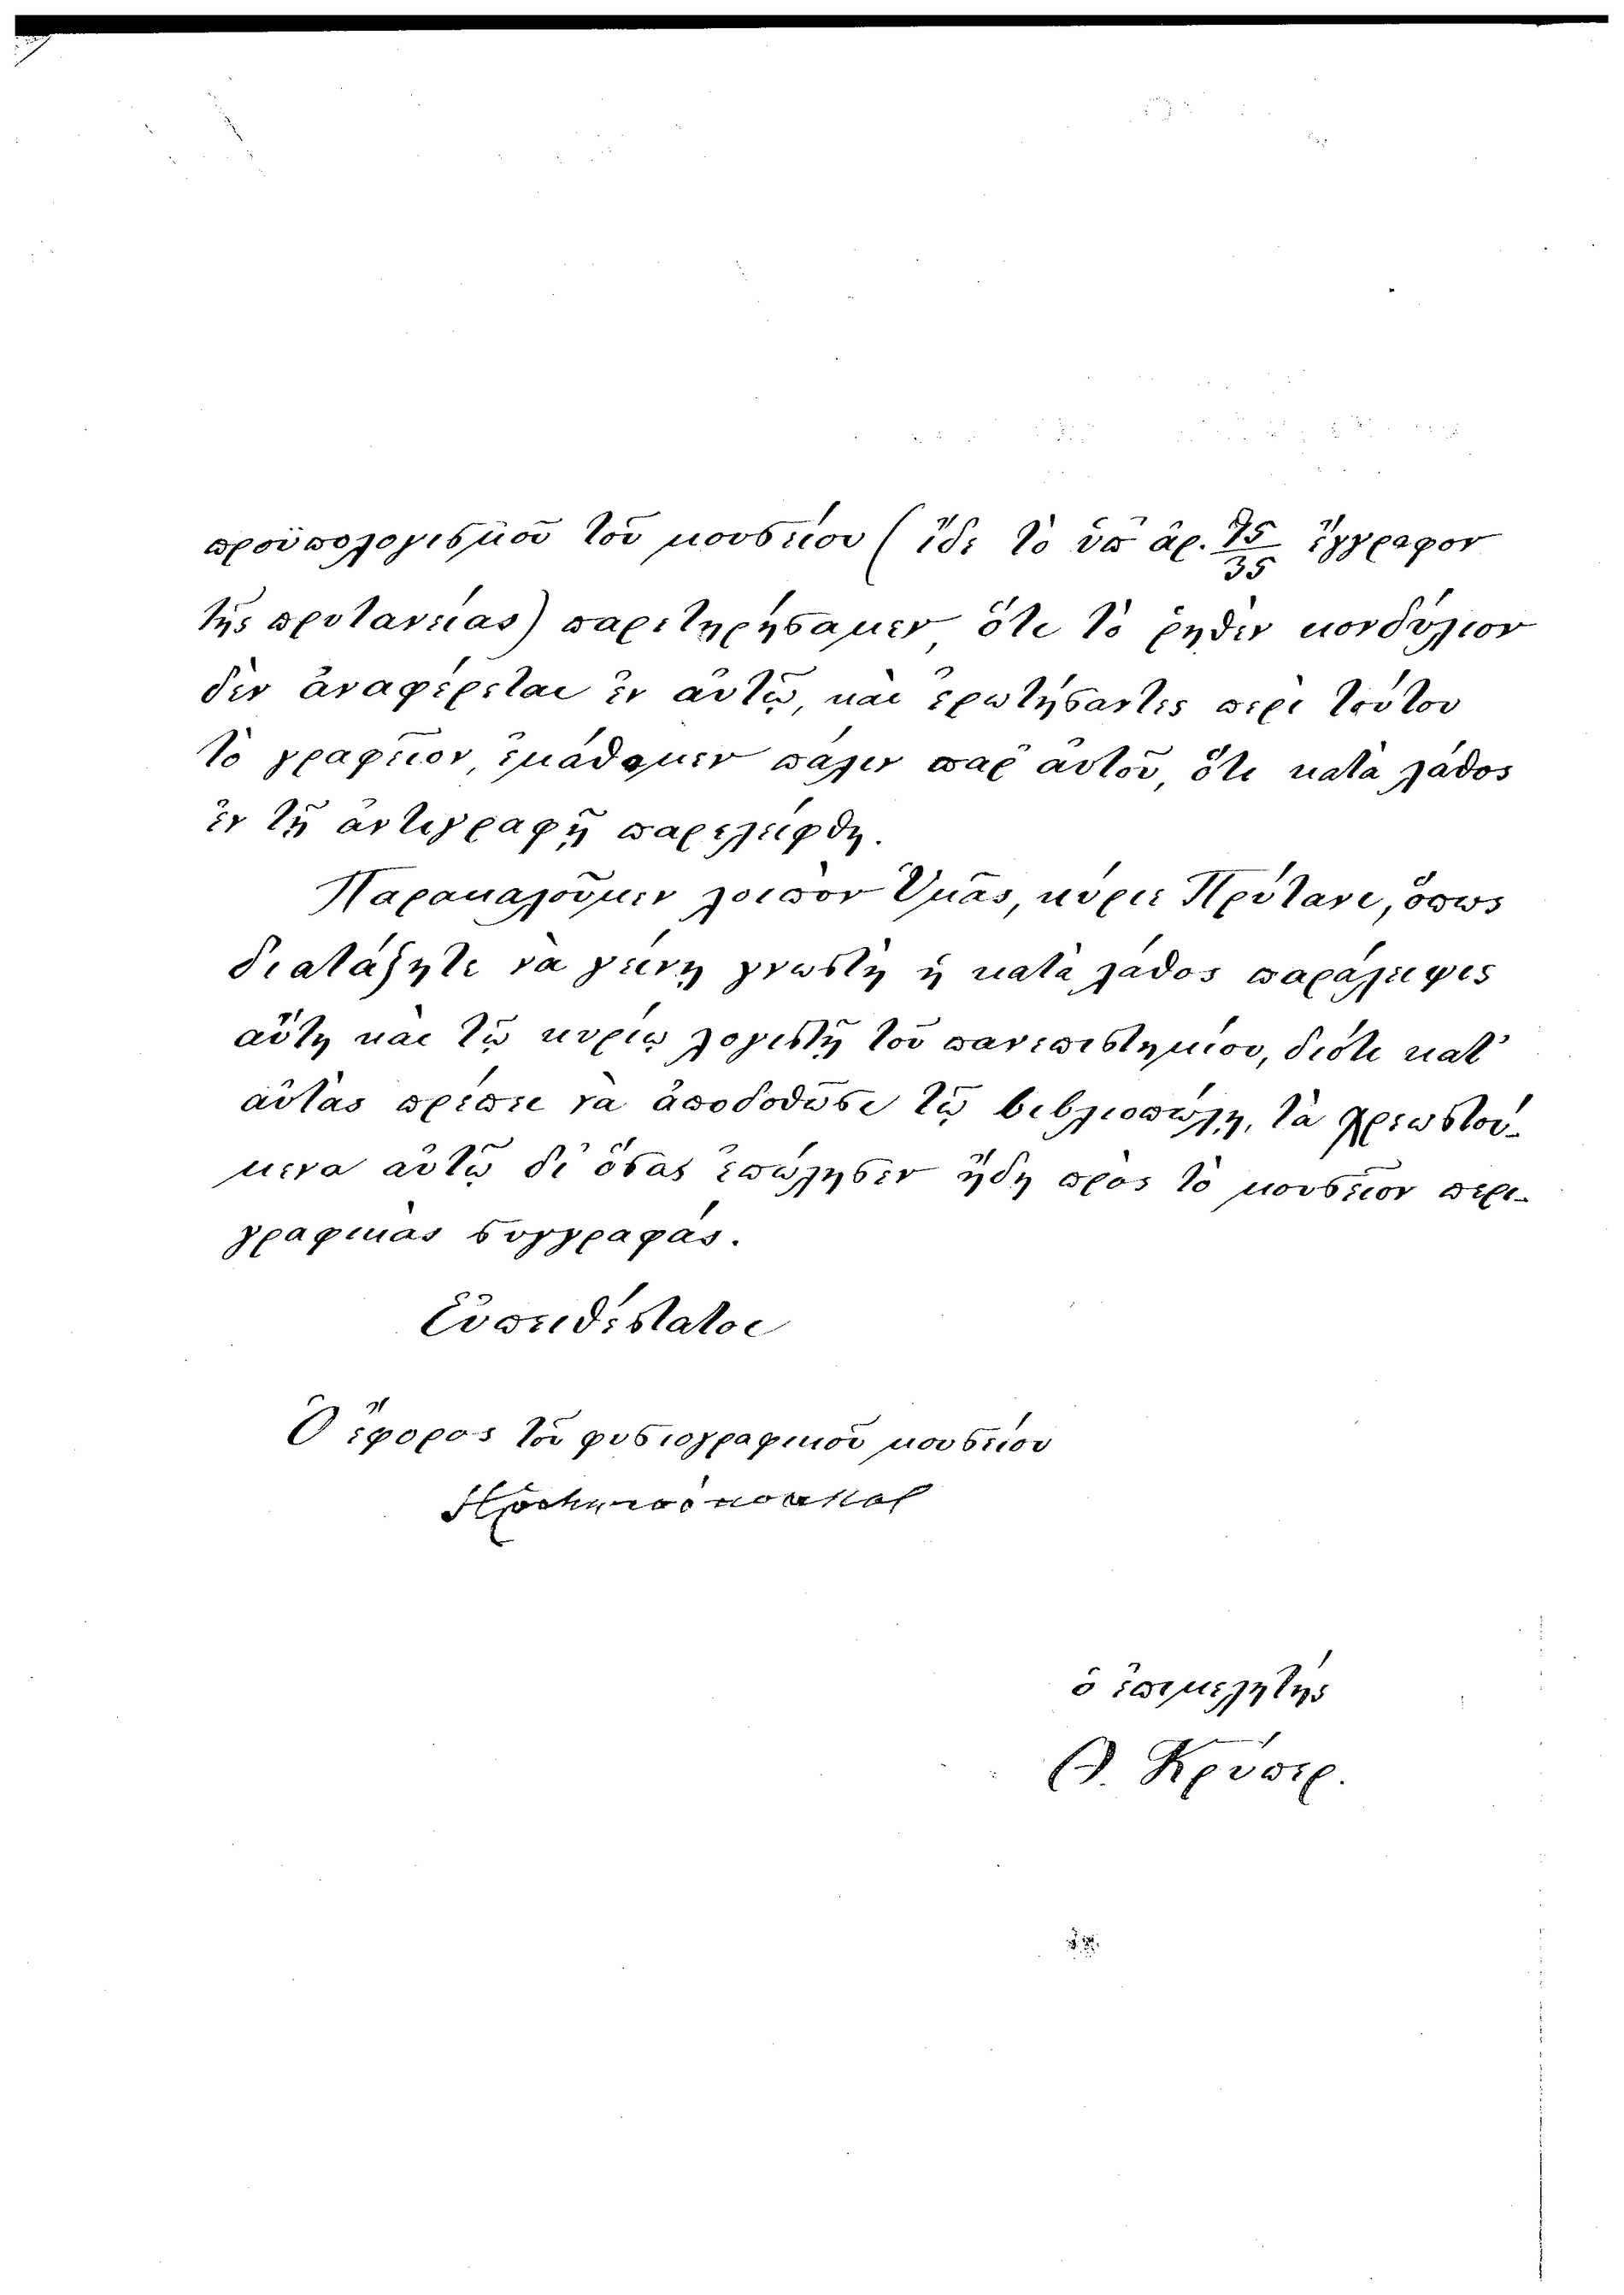 προϋπολογισμοῦ τοῦ μουσείου (ἴδε τὸ ὑπ' ἀρ. 75/35 ἔγγραφον
τῆς πρυτανείας) παρετηρήσαμεν, ὅτι τὸ ῥηθὲν κονδύλιον
δὲν ἀναφέρεται ἐν αὐτῷ, καὶ ἐρωτήσαντες περὶ τούτου
τὸ γραφεῖον, ἐμάθομεν πάλιν παρ' αὐτοῦ, ὅτι κατὰ λάθος
ἐν τῇ ἀντιγραφῇ παρελείφθη.
Παρακαλοῦμεν λοιπὸν Ὑμᾶς, κύριε Πρύτανι, ὅπως
διατάξητε νὰ γείνῃ γνωστὴ ἡ κατὰ λάθος παράλειψις
αὕτη καὶ τῷ κυρίῳ λογιστῇ τοῦ πανεπιστημίου, διότι κατ'
αὐτὰς πρέπει νὰ ἀποδοθῶσι τῷ βιβλιοπώλῃ, τὰ χρεωστού-
μενα αὐτῷ δι' ὅσας ἐπώλησεν ἤδη πρὸς τὸ μουσεῖον περι-
γραφικὰς συγγραφάς.
Εὐπειθέστατοι
Ὁ ἔφορος τοῦ φυσιογραφικοῦ μουσείου
ὁ ἐπιμελητὴς
Θ. Κρύπερ.